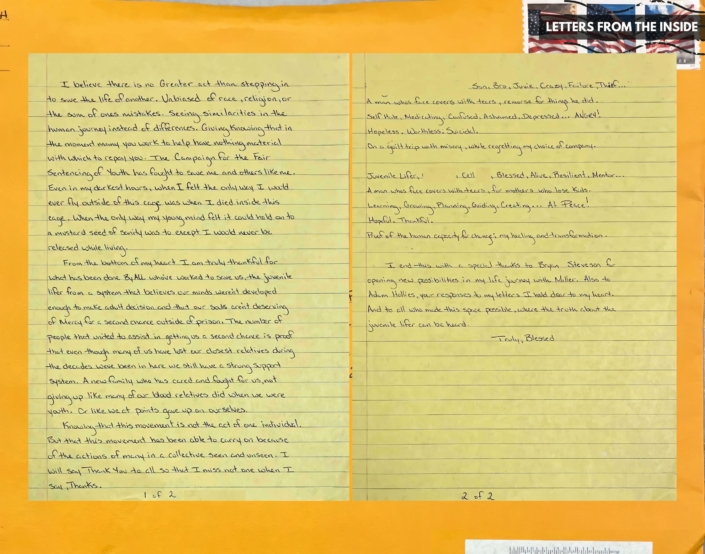 H
LETTERS FROM THE INSIDE
I believe there is no Greater act than stepping in
to save the life of another. Unbiased of race, religion, or
the sum of ones mistakes. Seeing similarities in the
human journey instead of differences. Giving Knowing that in
the moment many you work to help have nothing material
with which to repay you. The Campaign for the Fair
Sentencing of Youth has fought to save me and others like me.
Even in my darkest hours, when I felt the only way I would
ever fly outside of this cage was when I died inside this
cage. When the only way my young mind felt it could hold on to
a mustard seed of sanity was to except I would never be
released while living.
From the bottom of my heart I am truly thankful for
what has been done By ALL who've worked to save us, the juvenile
lifer from a system that believes our minds weren't developed
enough to make adult decision and that our souls aren't deserving
of Mercy for a second chance outside of prison. The number of
people that united to assist in getting us a second chance is proof
that even though many of us have lost our closest relatives during
the decades we've been in here we still have a strong support
system. A new family who has cared and fought for us, not
giving up like many of our blood relatives did when we were
youth. Or like we at points gave up on ourselves.
Knowing that this movement is not the act of one individual.
But that this movement has been able to carry on because
of the actions of many in a collective seen and unseen. I
will say Thank You to all so that I miss not one when I
say, Thanks.
1 of 2
Son, Bro, Junie, Crazy, Failure, Thief...
A man who's face covers with tears, remorse for things he did.
Self Hate, Medicating, Confused, Ashamed, Depressed... ANGRY!
Hopeless, Worthless, Suicidal.
On a guilt trip with misery, while regretting my choice of company.
Juvenile Lifer, , Cell , Blessed, Alive, Resilient, Mentor...
A man who's face covers with tears, for mothers who lose Kids.
Learning, Growing, Planning, Guiding, Creating... At Peace!
Hopeful, Thankful.
Proof of the human capacity for change; my healing and transformation.
I end this with a special thanks to Bryan Steveson for
opening new possibilities in my life journey with Miller. Also to
Adam Hollies, your responses to my letters I hold dear to my heart.
And to all who made this space possible, where the truth about the
juvenile lifer can be heard.
Truly, Blessed
2 of 2